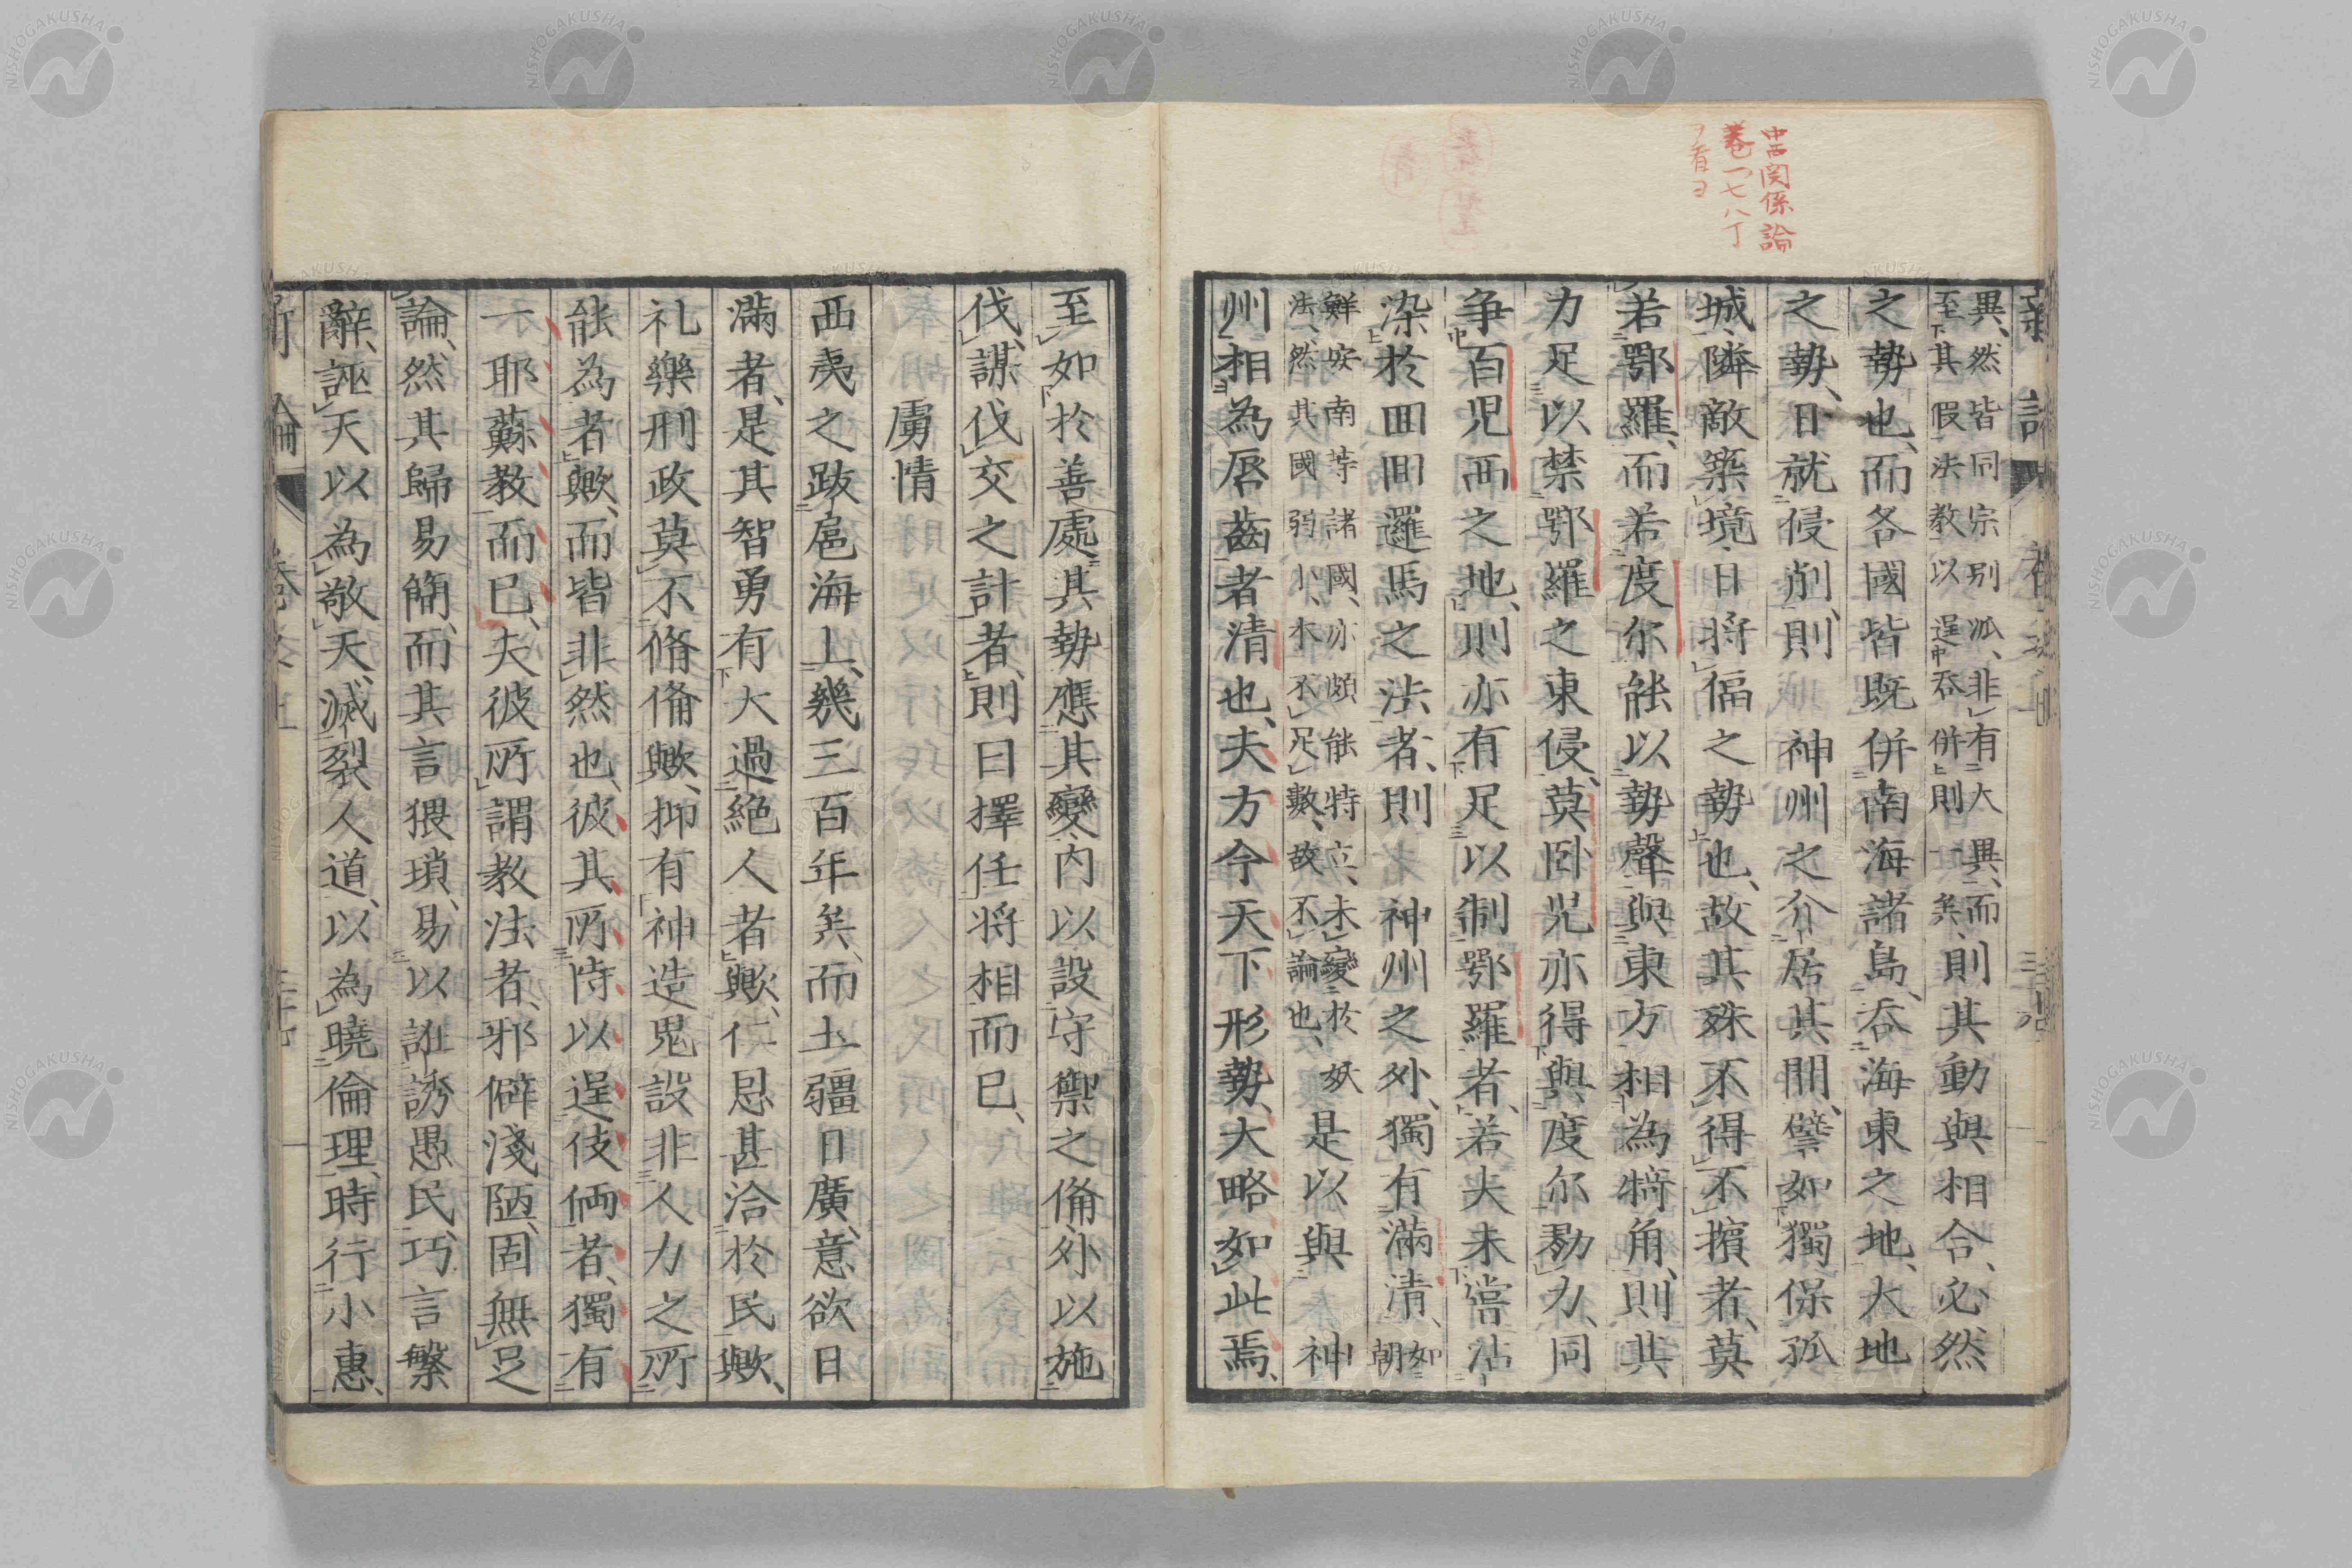 中西関係論
卷一、七八丁
ヲ看ヨ
異、然皆同宗別派、非有大異、而
至其假法教以逞呑併則一矣、
則其動與相合、必然
之勢也、而各國皆既併南海諸島、呑海東之地、大地
之勢、日就侵削、則 神州之介居其間、譬如獨保孤
城、隣敵築境、日將偪之勢也、故其殊不得不擯者、莫
若鄂羅、而若度尔能以勢聲與東方相為犄角、則其
力足以禁鄂羅之東侵、莫卧児亦得與度尔勠力、同
爭百児西之地、則亦有足以制鄂羅者、若夫未嘗沾
染於回回邏馬之法者、則 神州之外、獨有滿清、
如
朝
鮮安南等諸國、亦頗能特立、未變於妖
法、然其國弱小、不足數、故不論也、
是以與 神
州相為唇齒者清也、夫方今天下形勢、大略如此焉、
至如於善處其勢應其變、内以設守禦之備、外以施
伐謀伐交之計者、則曰擇任将相而已、
虜情
西夷之跋扈海上、幾三百年矣、而土疆日廣、意欲日
滿者、是其智勇有大過絶人者歟、仁恩甚洽於民歟、
礼樂刑政莫不脩備歟、抑有神造鬼設非人力之所
能為者歟、而皆非然也、彼其所恃以逞伎倆者、獨有
一耶蘇教而已、夫彼所謂教法者、邪僻淺陋、固無足
論、然其歸易簡、而其言猥瑣、易以誑誘愚民、巧言繁
辭、誣天以為敬天、滅裂人道、以為曉倫理、時行小惠、